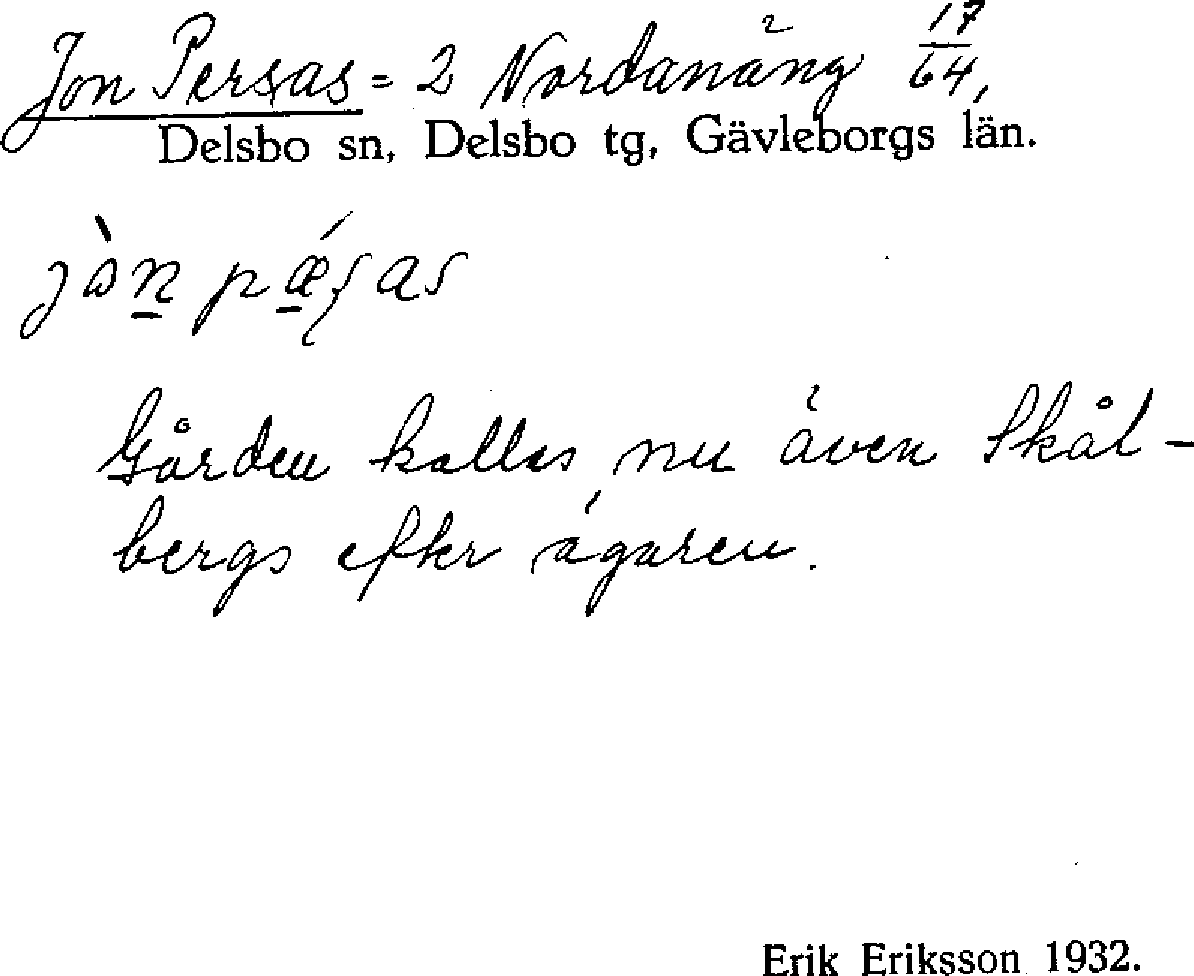 Jon Persas = 2 Nordanäng 17/64,
Delsbo sn, Delsbo tg, Gävleborgs län.
jòn pǽʂas
Gården kallas nu även Skål-
bergs efter ägaren.
Erik Eriksson 1932.